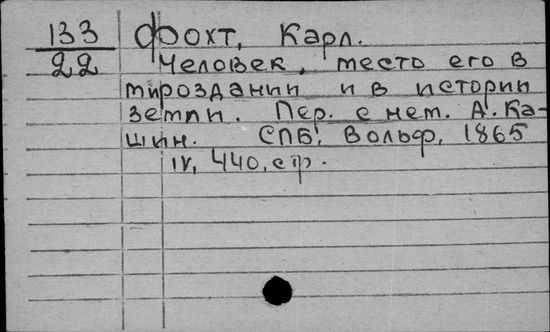 133 Фохт, Карл.
22 Человек, место его в
мироздании и в истории
земли. Пер. с нем. А. Ка-
шин. СПБ, Вольф, 1865
IV, 440, стр.